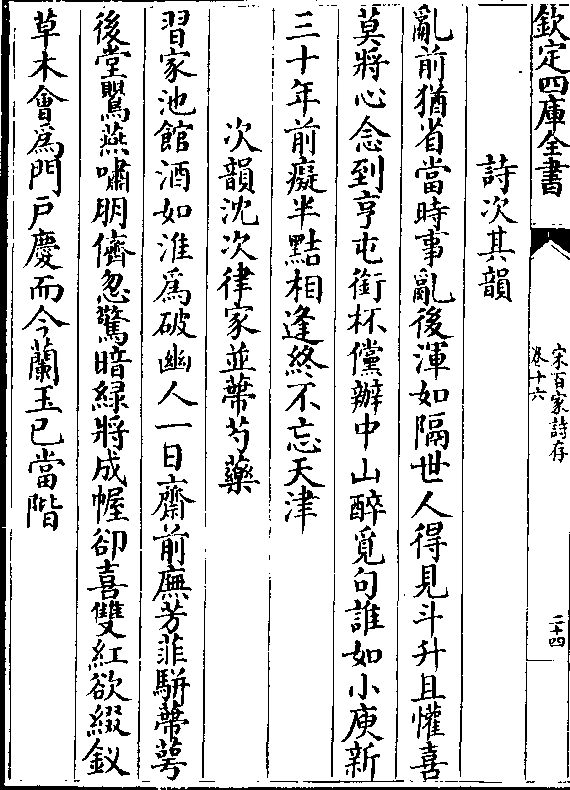 欽定四庫全書
宋百家詩存
卷十六
二十四
詩次其韻
亂前猶省當時事亂後渾如隔世人得見斗升且懽喜
莫將心念到亨屯銜杯儻辦中山醉覓句誰如小庾新
三十年前癡半黠相逢終不忘天津
次韻沈次律家並蔕芍藥
習家池館酒如淮為破幽人一日齋前廡芳菲駢蔕萼
後堂鸎燕嘯朋儕忽驚暗緑將成幄卻喜雙紅欲綴釵
草木會為門戸慶而今蘭玉已當階